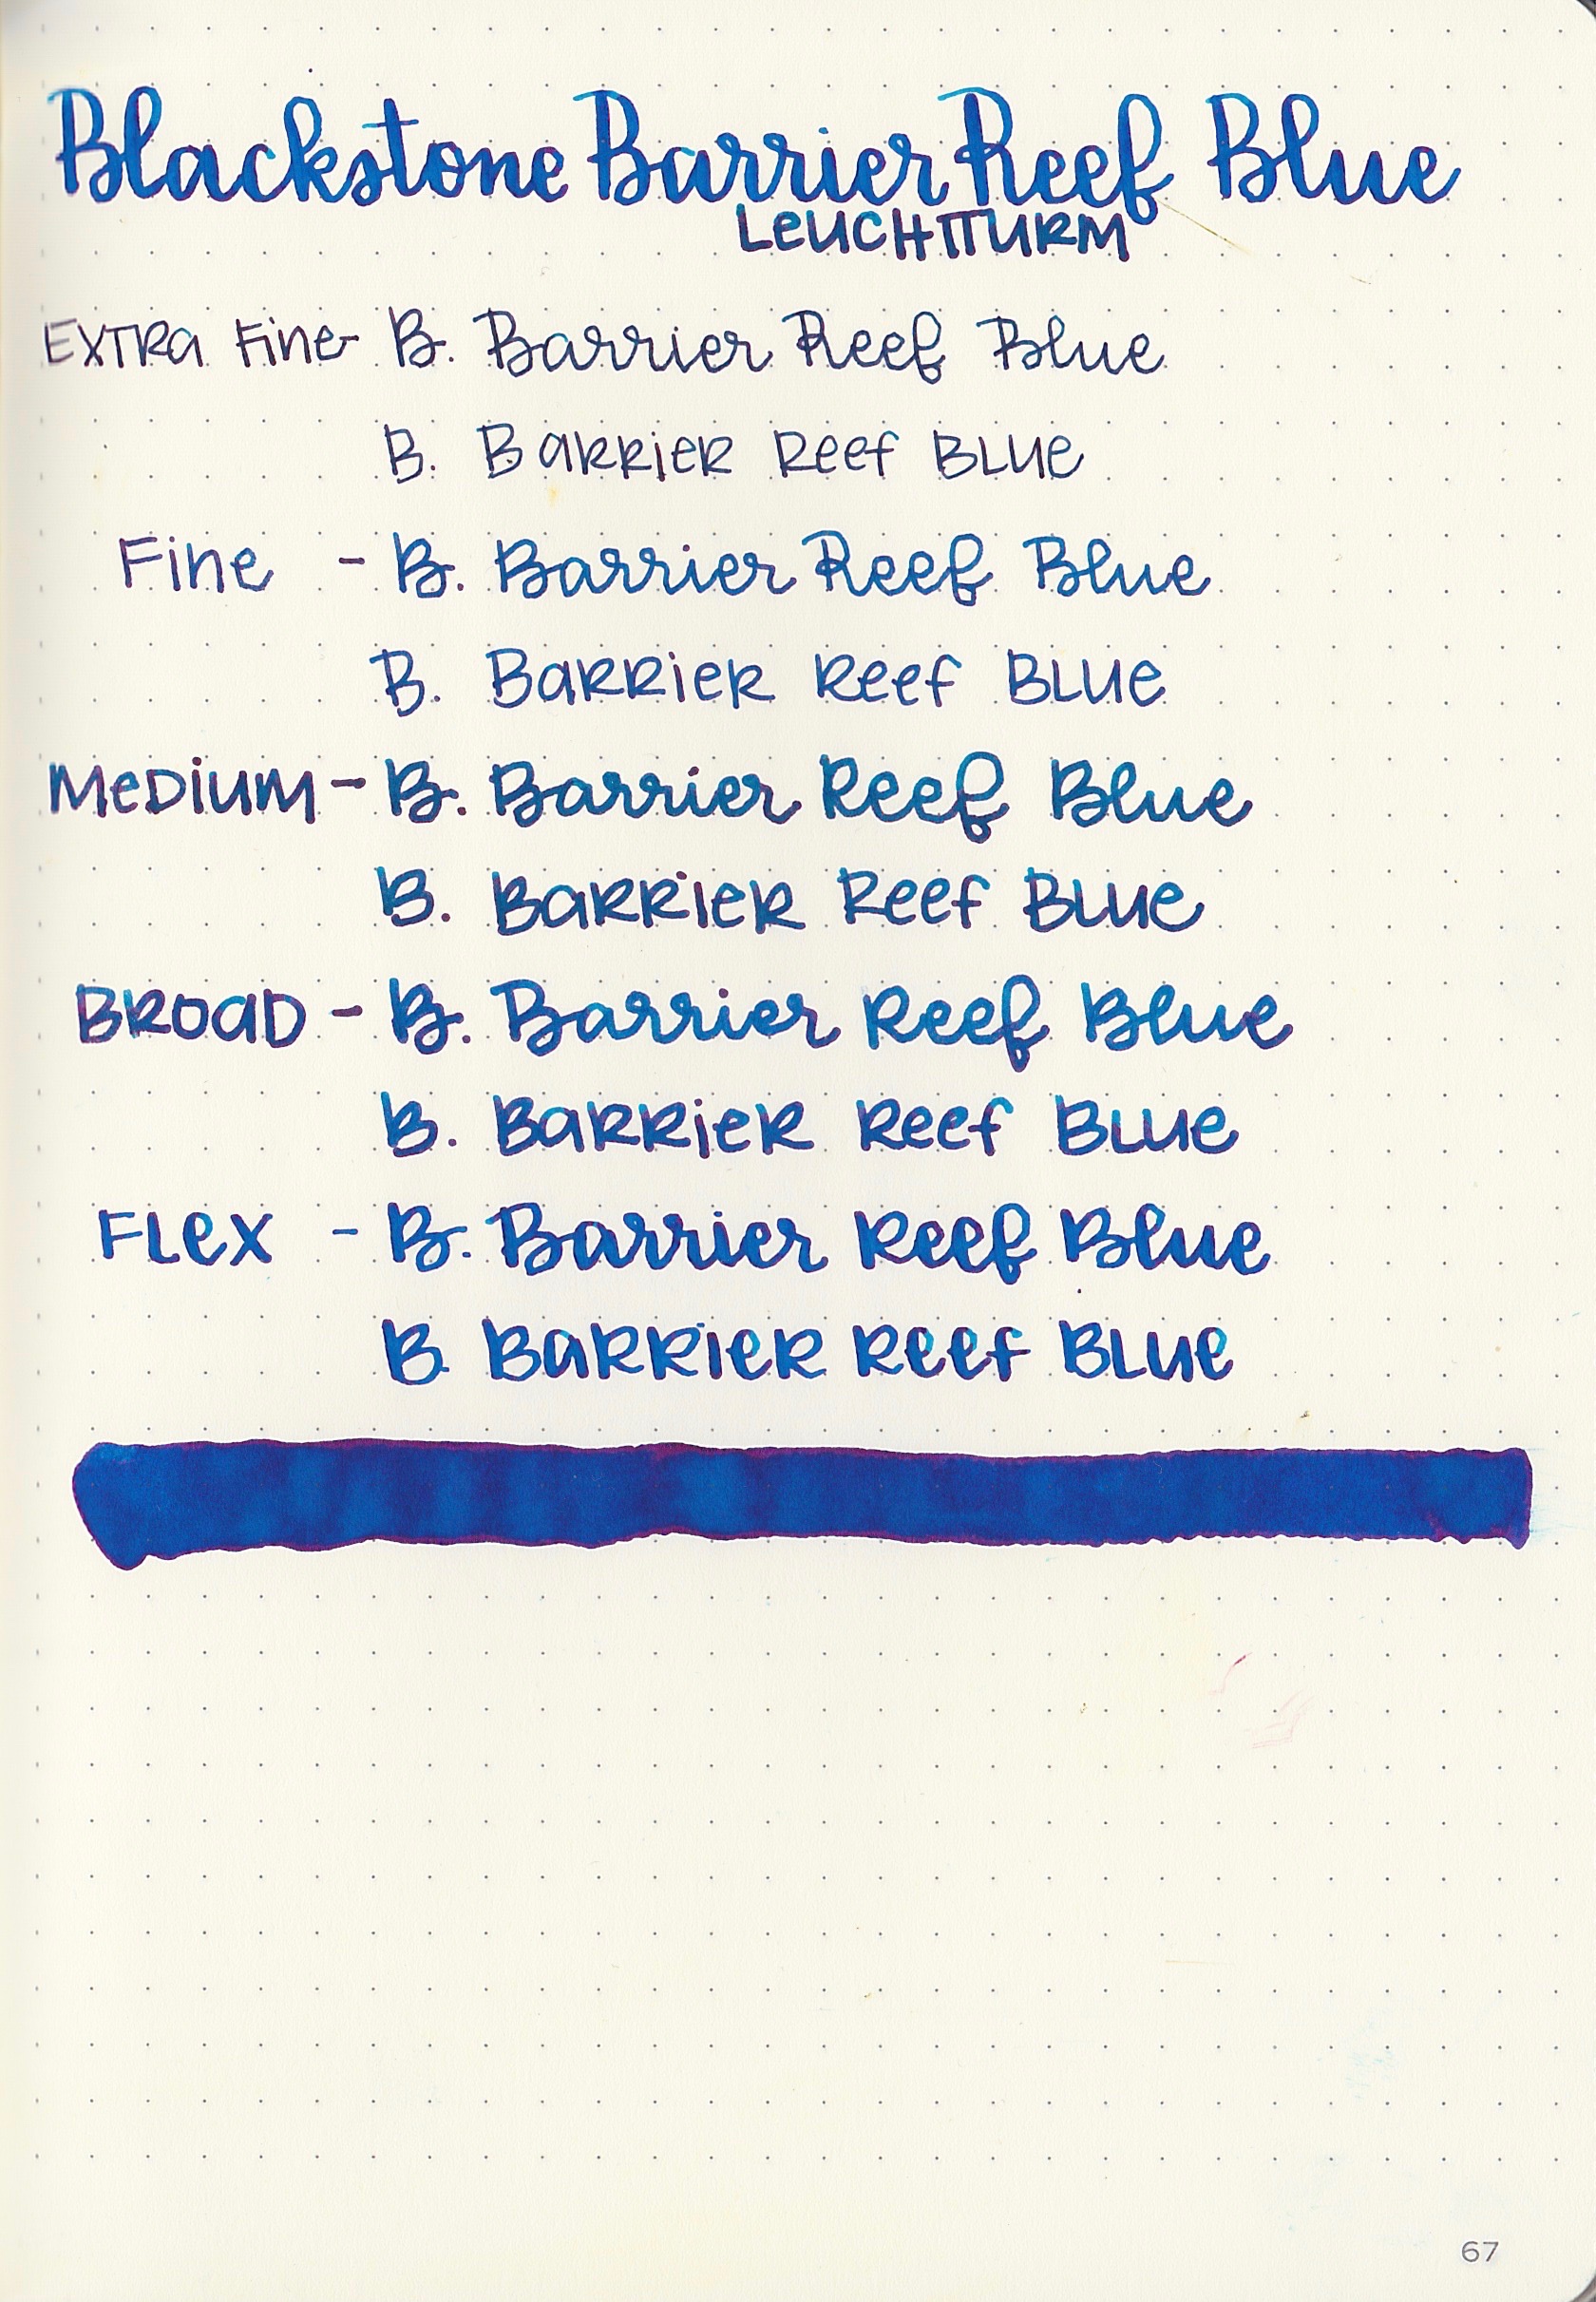 Blackstone Barrier Reef Blue
LEUCHTTURM
EXTRA Fine - B. Barrier Reef Blue
B. BARRIER Reef BLUE
Fine - B. Barrier Reef Blue
B. BARRIER Reef BLUE
MEDIUM - B. Barrier Reef Blue
B. BARRIER Reef BLUE
BROAD - B. Barrier Reef Blue
B. BARRIER Reef BLUE
FLEX - B. Barrier Reef Blue
B. BARRIER Reef BLUE
67